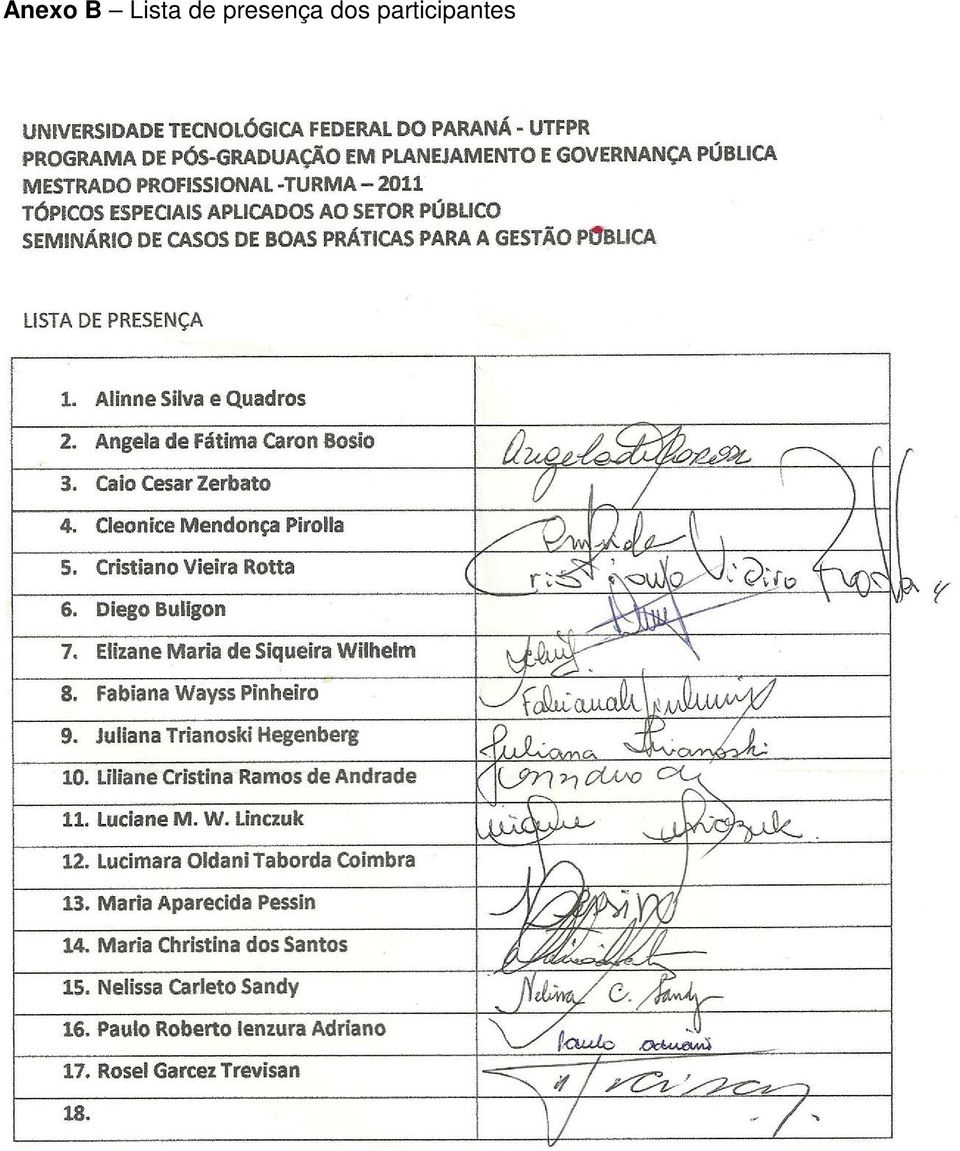 Anexo B – Lista de presença dos participantes
UNIVERSIDADE TECNOLÓGICA FEDERAL DO PARANÁ - UTFPR
PROGRAMA DE PÓS-GRADUAÇÃO EM PLANEJAMENTO E GOVERNANÇA PÚBLICA
MESTRADO PROFISSIONAL -TURMA – 2011
TÓPICOS ESPECIAIS APLICADOS AO SETOR PÚBLICO
SEMINÁRIO DE CASOS DE BOAS PRÁTICAS PARA A GESTÃO PÚBLICA
LISTA DE PRESENÇA
1. Alinne Silva e Quadros
2. Angela de Fátima Caron Bosio
3. Caio Cesar Zerbato
4. Cleonice Mendonça Pirolla
5. Cristiano Vieira Rotta Cristiano Vieira Rotta
6. Diego Buligon
7. Elizane Maria de Siqueira Wilhelm
8. Fabiana Wayss Pinheiro
9. Juliana Trianoski Hegenberg Juliana Trianoski
10. Liliane Cristina Ramos de Andrade
11. Luciane M. W. Linczuk
12. Lucimara Oldani Taborda Coimbra
13. Maria Aparecida Pessin
14. Maria Christina dos Santos
15. Nelissa Carleto Sandy Nelissa C. Sandy
16. Paulo Roberto Ienzura Adriano Paulo Adriano
17. Rosel Garcez Trevisan
18.